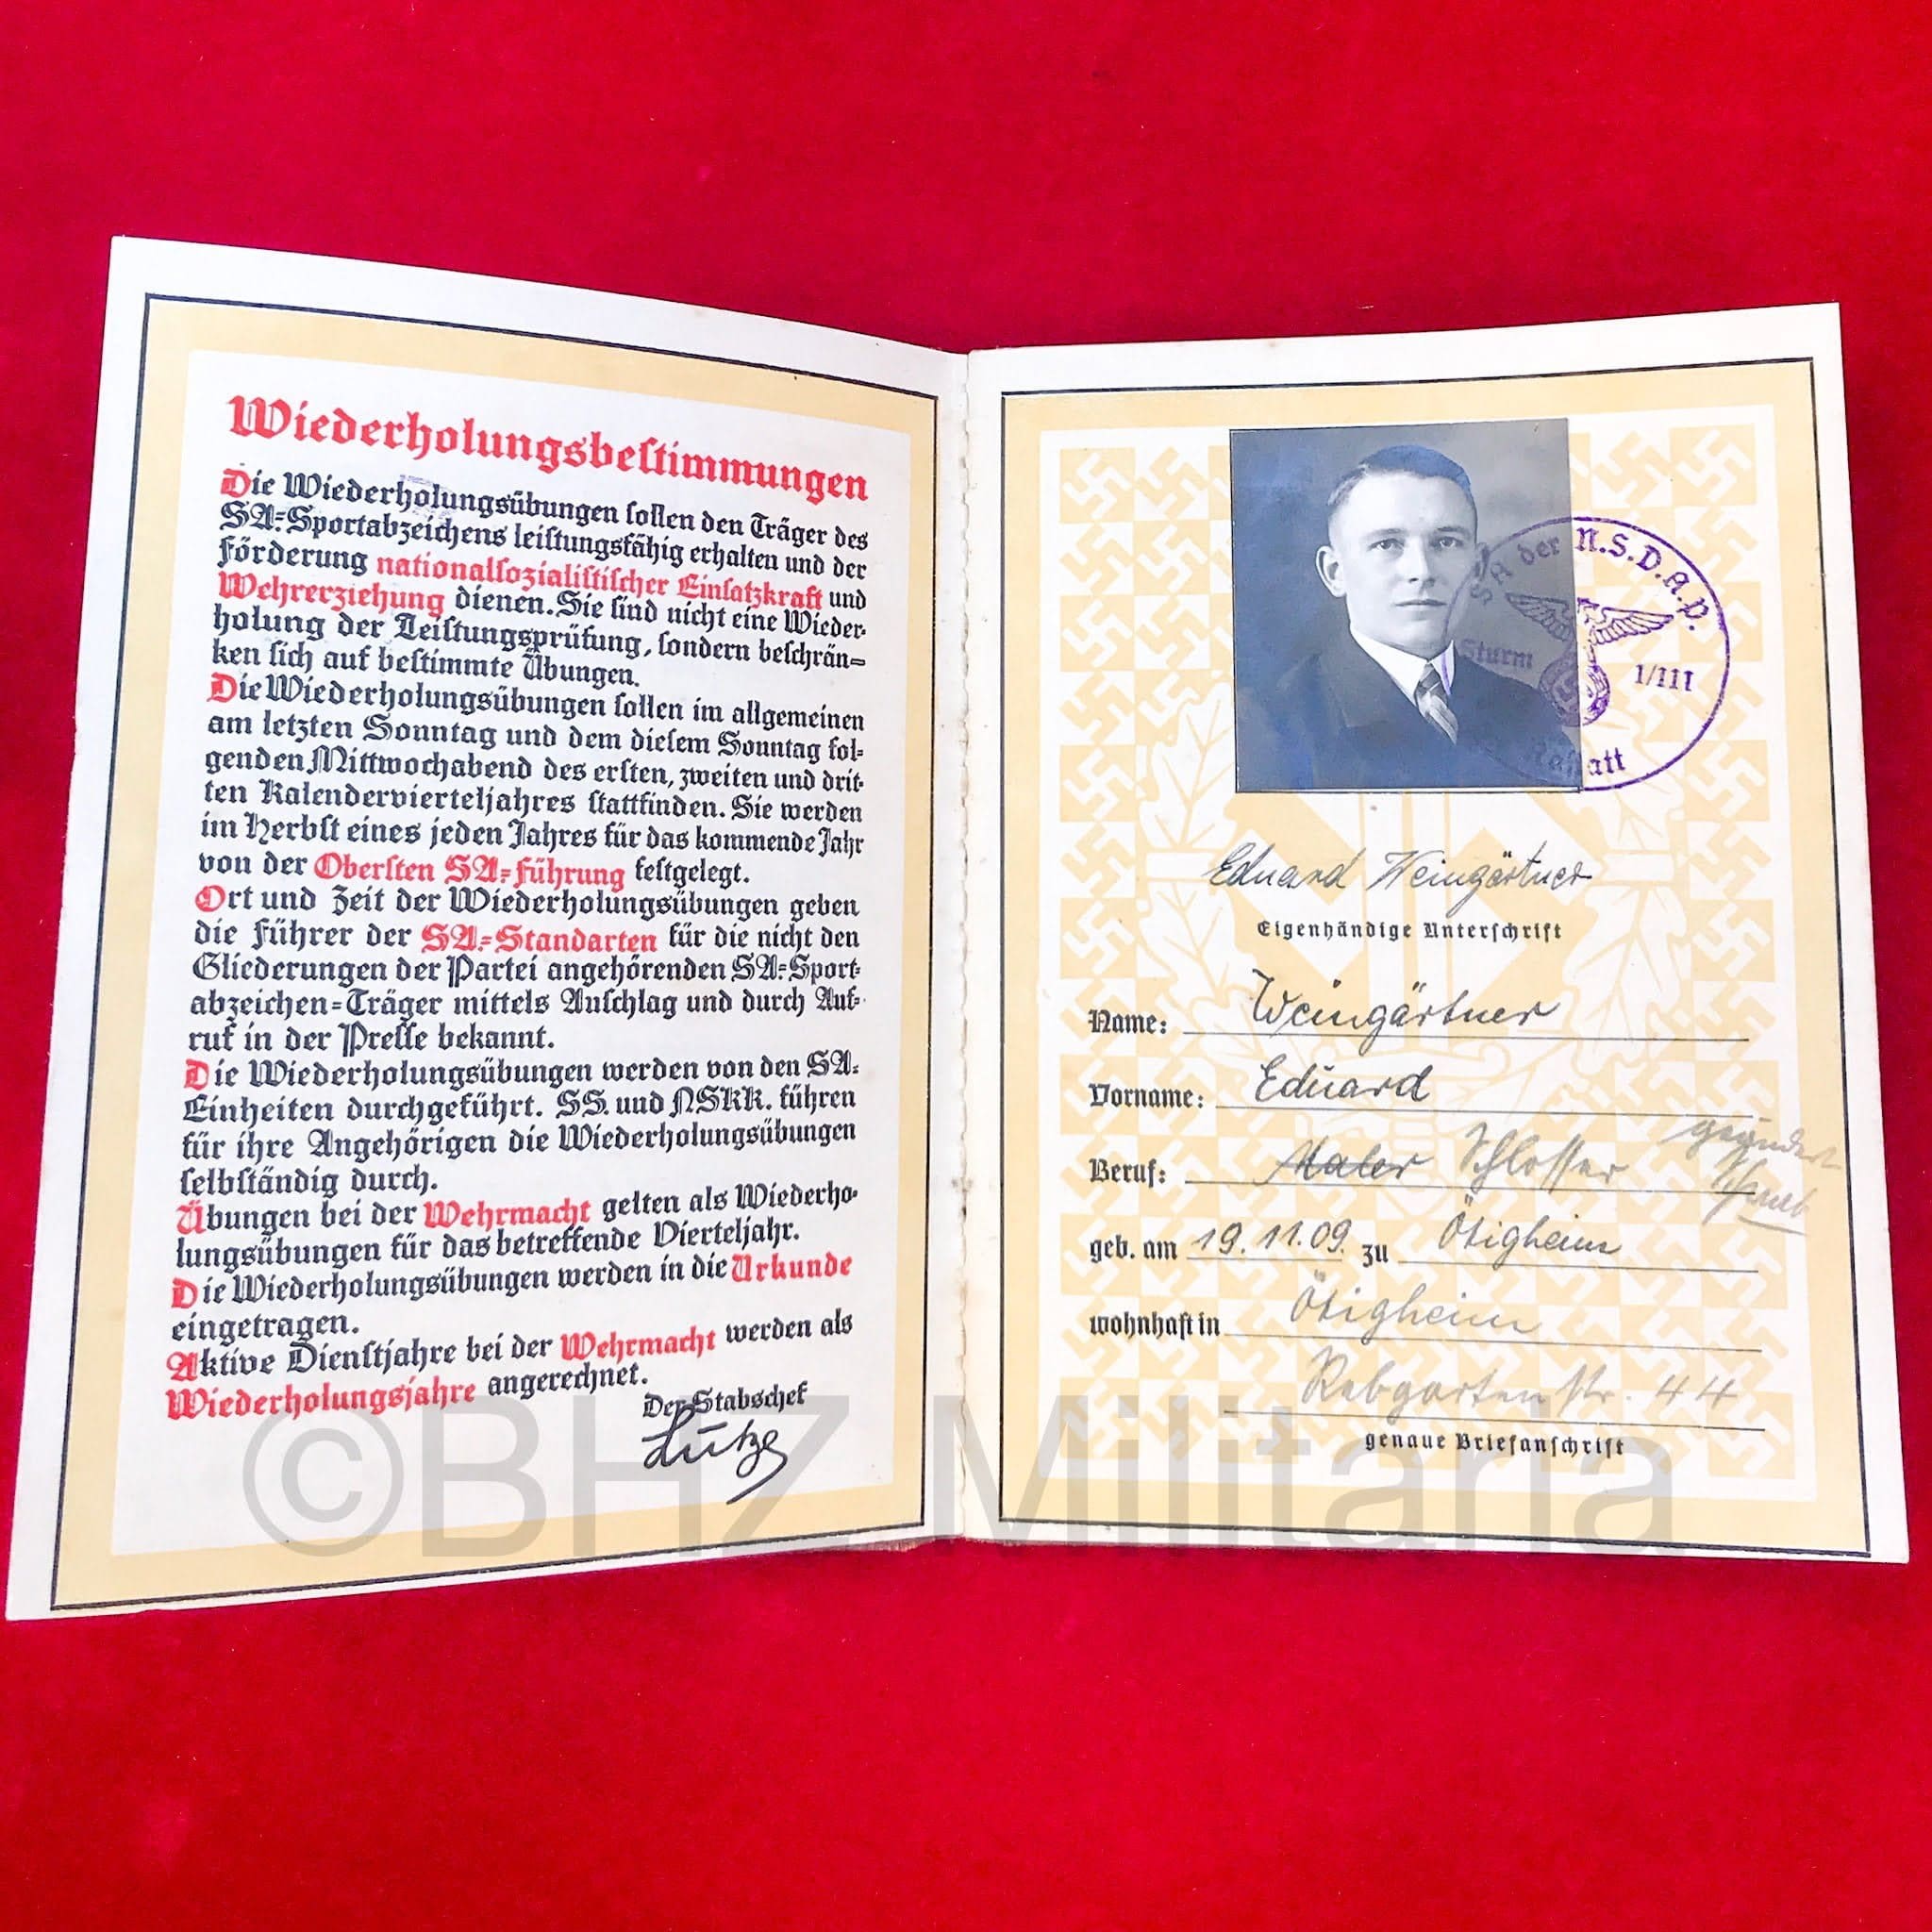 Wiederholungsbestimmungen
Die Wiederholungsübungen sollen den Träger des
SA=Sportabzeichens leistungsfähig erhalten und der
Förderung nationalsozialistischer Einsatzkraft und
Wehrerziehung dienen. Sie sind nicht eine Wieder=
holung der Leistungsprüfung, sondern beschrän=
ken sich auf bestimmte Übungen.
Die Wiederholungsübungen sollen im allgemeinen
am letzten Sonntag und dem diesem Sonntag fol=
genden Mittwochabend des ersten, zweiten und drit=
ten Kalendervierteljahres stattfinden. Sie werden
im Herbst eines jeden Jahres für das kommende Jahr
von der Obersten SA=Führung festgelegt.
Ort und Zeit der Wiederholungsübungen geben
die Führer der SA=Standarten für die nicht den
Gliederungen der Partei angehörenden SA=Sport=
abzeichen=Träger mittels Anschlag und durch Auf=
ruf in der Presse bekannt.
Die Wiederholungsübungen werden von den SA=
Einheiten durchgeführt. SS. und NSKK. führen
für ihre Angehörigen die Wiederholungsübungen
selbständig durch.
Übungen bei der Wehrmacht gelten als Wiederho=
lungsübungen für das betreffende Vierteljahr.
Die Wiederholungsübungen werden in die Urkunde
eingetragen.
Aktive Dienstjahre bei der Wehrmacht werden als
Wiederholungsjahre angerechnet.
Der Stabschef
Lutze
SA der N.S.D.A.P.
Sturm 1/111
Rastatt
Eduard Weingärtner
Eigenhändige Unterschrift
Name: Weingärtner
Vorname: Eduard
Beruf: Maler Schlosser geändert
geb. am 19.11.09. zu Ötigheim
wohnhaft in Ötigheim
Rebgarten Str. 44
genaue Briefanschrift
©BHZ Militaria